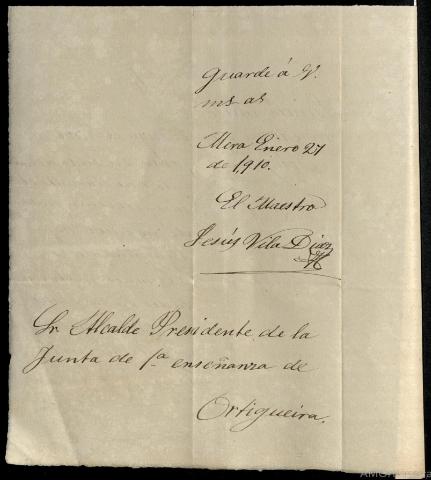 guarde á V.
ms as
Mera Enero 27
de 1,910.
El Maestro
Jesús Vila Diaz
Sr Alcalde Presidente de la
Junta de 1ª enseñanza de
Ortigueira.